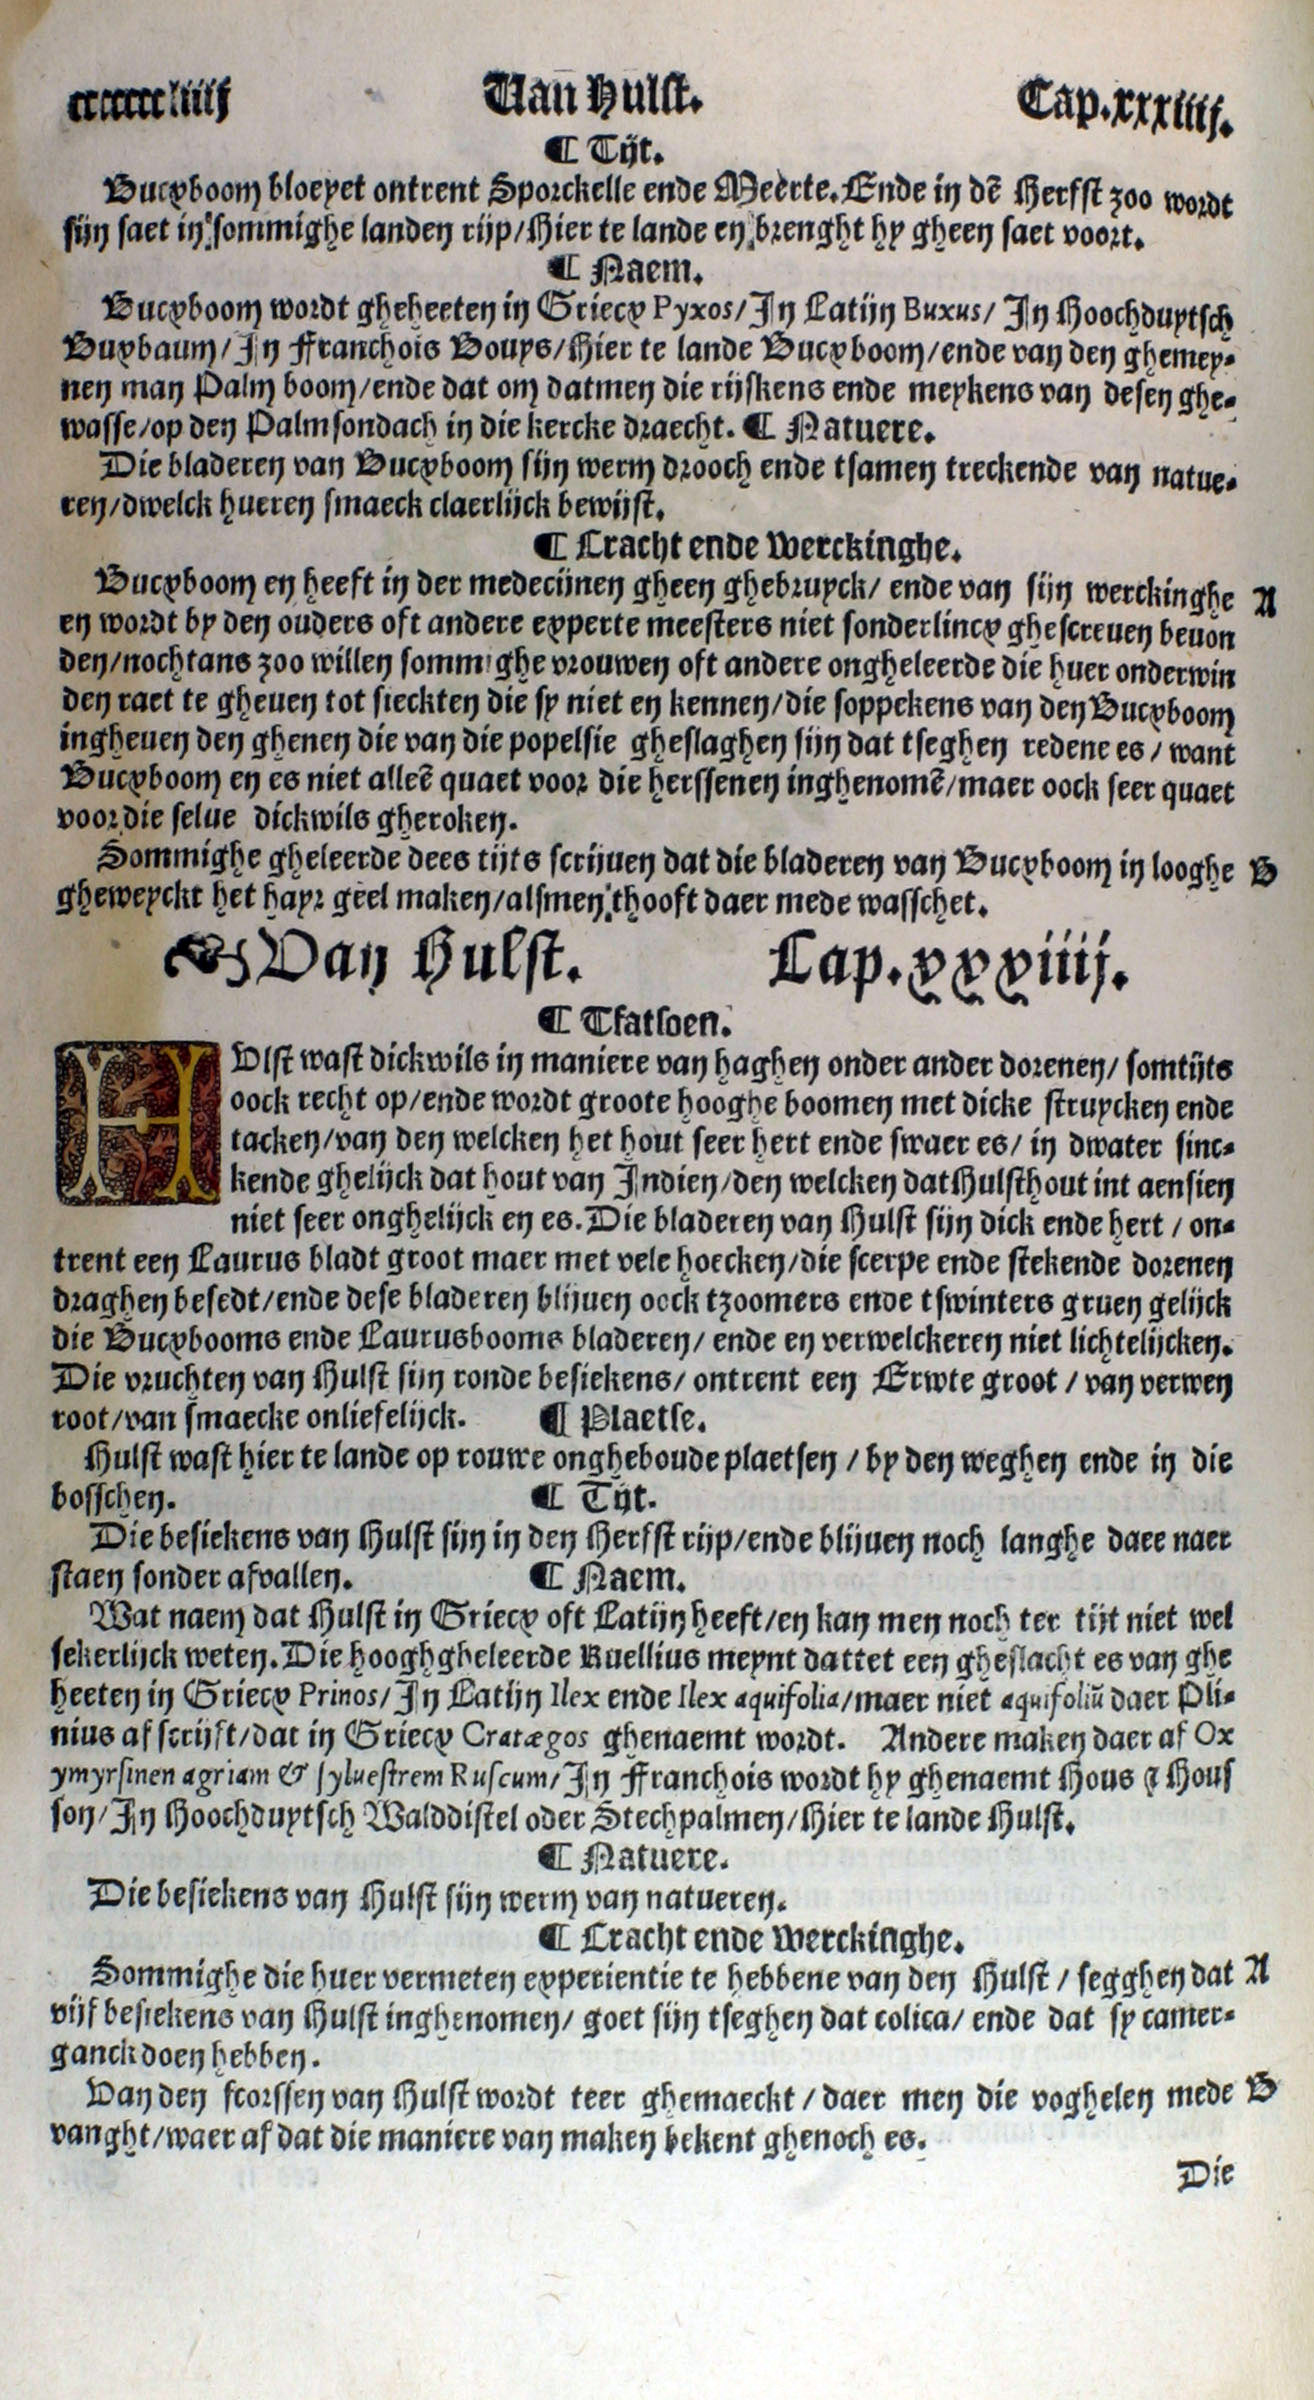 ccccccliiij Van Hulst. Cap.xxxiiij.
¶ Tijt.
Bucxboom bloeyet ontrent Sporckelle ende Meerte. Ende in dē Herfst zoo wordt
sijn saet in sommighe landen rijp/Hier te lande en brenght hy gheen saet voort.
¶ Naem.
Bucxboom wordt gheheeten in Griecx Pyxos/In Latijn Buxus/ In Hoochduytsch
Buxbaum/In Franchois Bouys/Hier te lande Bucxboom/ende van den ghemey-
nen man Palm boom/ende dat om datmen die rijskens ende meykens van desen ghe-
wasse/op den Palmsondach in die kercke draecht. ¶ Natuere.
Die bladeren van Bucxboom sijn werm drooch ende tsamen treckende van natue-
ren/dwelck hueren smaeck claerlijck bewijst.
¶ Cracht ende Werckinghe.
Bucxboom en heeft in der medecijnen gheen ghebruyck/ ende van sijn werckinghe A
en wordt by den ouders oft andere experte meesters niet sonderlincx ghescreuen beuon
den/nochtans zoo willen sommighe vrouwen oft andere ongheleerde die huer onderwin
den raet te gheuen tot sieckten die sy niet en kennen/die soppekens van den Bucxboom
ingheuen den ghenen die van die popelsie gheslaghen sijn dat tseghen redene es/want
Bucxboom en es niet alleē quaet voor die herssenen inghenomē/maer oock seer quaet
voor die selue dickwils gheroken.
Sommighe gheleerde dees tijts scrijuen dat die bladeren van Bucxboom in looghe B
gheweyckt het hayr geel maken/alsmen thooft daer mede wasschet.
Van Hulst. Cap.xxxiiij.
¶ Tfatsoen.
HVlst wast dickwils in maniere van haghen onder ander dorenen/ somtijts
oock recht op/ende wordt groote hooghe boomen met dicke struycken ende
tacken/van den welcken het hout seer hert ende swaer es/ in dwater sinc-
kende ghelijck dat hout van Indien/den welcken dat Hulsthout int aensien
niet seer onghelijck en es. Die bladeren van Hulst sijn dick ende hert / on-
trent een Laurus bladt groot maer met vele hoecken/die scerpe ende stekende dorenen
draghen besedt/ende dese bladeren blijuen oock tzoomers ende tswinters gruen gelijck
die Bucxbooms ende Laurusbooms bladeren/ ende en verwelckeren niet lichtelijcken.
Die vruchten van Hulst sijn ronde besiekens/ ontrent een Erwte groot / van verwen
root/van smaecke onliefelijck. ¶ Plaetse.
Hulst wast hier te lande op rouwe ongheboude plaetsen / by den weghen ende in die
bosschen. ¶ Tijt.
Die besiekens van Hulst sijn in den Herfst rijp/ende blijuen noch langhe daee naer
staen sonder afvallen. ¶ Naem.
Wat naem dat Hulst in Griecx oft Latijn heeft/en kan men noch ter tijt niet wel
sekerlijck weten. Die hooghgheleerde Ruellius meynt dattet een gheslacht es van ghe
heeten in Griecx Prinos/In Latijn Ilex ende Ilex aquifolia/maer niet aquifoliū daer Pli-
nius af scrijft/dat in Griecx Cratægos ghenaemt wordt. Andere maken daer af Ox
ymyrsinen agriam & syluestrem Ruscum/In Franchois wordt hy ghenaemt Hous ⁊ Hous
son/In Hoochduytsch Walddistel oder Stechpalmen/Hier te lande Hulst.
¶ Natuere.
Die besiekens van Hulst sijn werm van natueren.
¶ Cracht ende Werckinghe.
Sommighe die huer vermeten experientie te hebbene van den Hulst / segghen dat A
vijf besiekens van Hulst inghenomen/ goet sijn tseghen dat colica/ ende dat sy camer-
ganck doen hebben.
Van den scorssen van Hulst wordt teer ghemaeckt / daer men die voghelen mede B
vanght/waer af dat die maniere van maken bekent ghenoch es.
Die